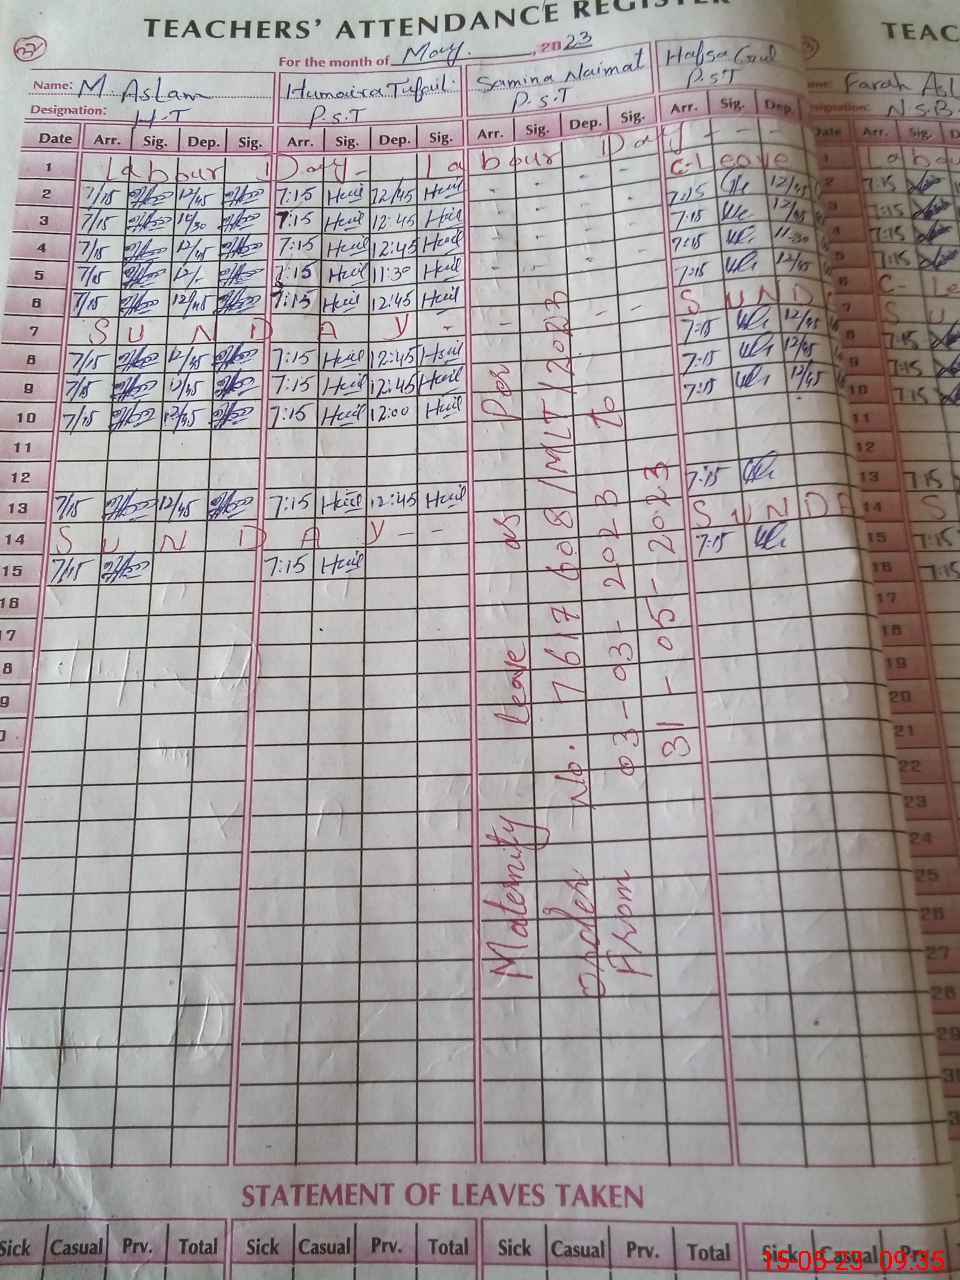 TEACHERS' ATTENDANCE REGISTER
TEAC
For the month of May. , 2023
Name: M Aslam Humaira Tufail. Samina Naimat Hafsa Gul Farah Asl
Designation: H-T P.S.T P.S.T P.S.T N.S.B
Date Arr. Sig. Dep. Sig. Arr. Sig. Dep. Sig. Arr. Sig. Dep. Sig. Arr. Sig. Dep. Date Arr. Sig.
1 Labour Day - Labour Day - - - 1 Labou
C-Leave
2 7/15 12/45 7:15 Huil 12/45 Huil - - - - 7:15 12/45 2 7:15
3 7/15 7:15 Huil 12:45 Huil - - - - 7:15 12/45 3 7:15
4 7/15 12/45 7:15 Huil 12:45 Huil - - - - 7:15 11-30 4 7:15
5 7/15 12/- 7:15 Huil 11:30 Huil - - - - 7:15 12/45
6 7/15 12/45 7:15 Huil 12:45 Huil SUND 6 C-Le
7 SUNDAY - - - - 7:15 12/45 7 SU
8 7/15 12/45 7:15 Huil 12:45 Huil 7:15 12/45 8 7:15
9 7/15 12/45 7:15 Huil 12:45 Huil 7:15 12/45 9 7:15
10 7/15 12/45 7:15 Huil 12:00 Huil 10 7:15
11 11
12 7:15 12
13 7/15 12/45 7:15 Huil 12:45 Huil SUNDA 13 7:15
14 SUNDAY - - 7:15 14 S
15 7/15 7:15 Huil 15 7:15
16 16 7:15
17 17
18 18
19 19
20 20
21
22
23
24
25
26
27
28
29
30
3
Maternity leave as per
order No. 7617608/MLT/2023
From 03-03-2023 to
31-05-2023
STATEMENT OF LEAVES TAKEN
Sick Casual Prv. Total Sick Casual Prv. Total Sick Casual Prv. Total Sick Casual Prv.
15-05-23 09:35